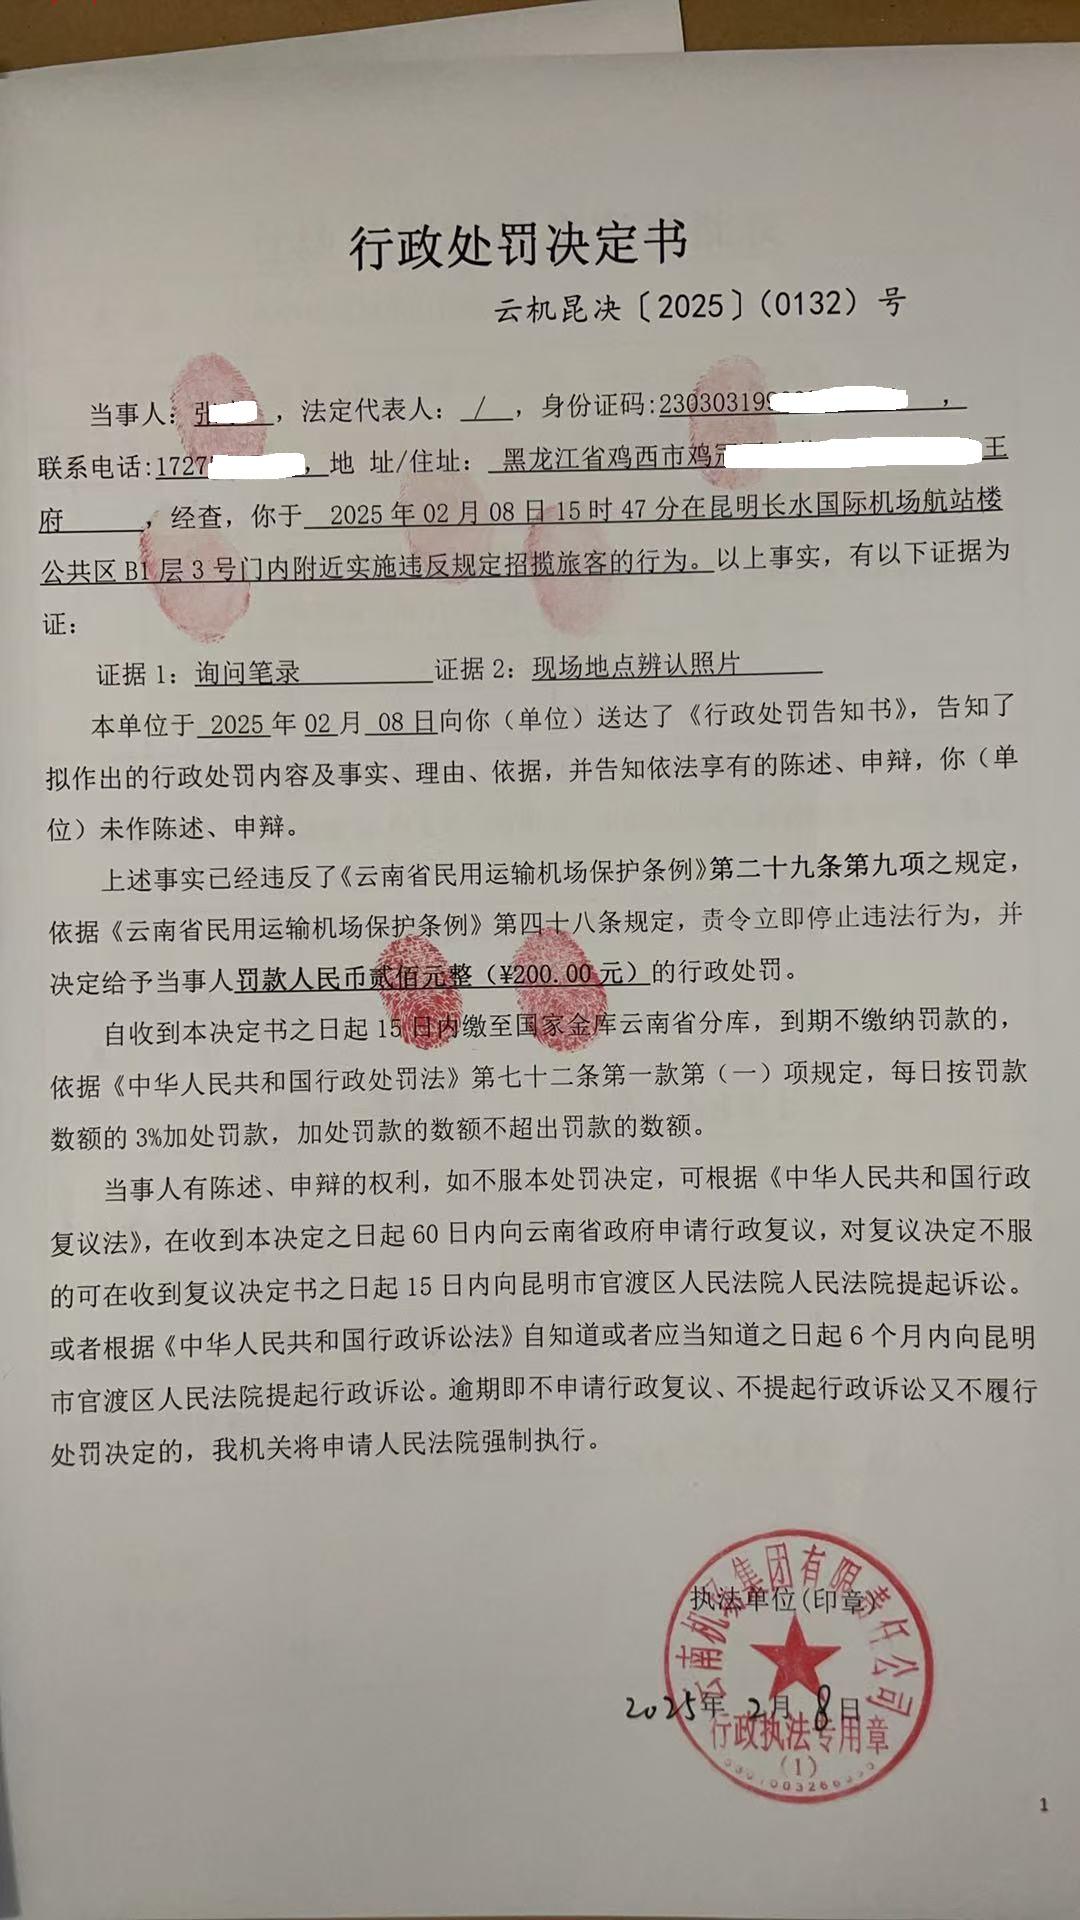 行政处罚决定书
云机昆决〔2025〕（0132）号
当事人：张，法定代表人：/，身份证码:23030319，
联系电话:1727，地 址/住址：黑龙江省鸡西市鸡冠王
府，经查，你于 2025年02月08日15时47分在昆明长水国际机场航站楼
公共区B1层3号门内附近实施违反规定招揽旅客的行为。以上事实，有以下证据为
证：
证据1：询问笔录 证据2：现场地点辨认照片
本单位于 2025 年 02 月 08 日向你（单位）送达了《行政处罚告知书》，告知了
拟作出的行政处罚内容及事实、理由、依据，并告知依法享有的陈述、申辩，你（单
位）未作陈述、申辩。
上述事实已经违反了《云南省民用运输机场保护条例》第二十九条第九项之规定，
依据《云南省民用运输机场保护条例》第四十八条规定，责令立即停止违法行为，并
决定给予当事人罚款人民币贰佰元整（¥200.00元）的行政处罚。
自收到本决定书之日起15日内缴至国家金库云南省分库，到期不缴纳罚款的，
依据《中华人民共和国行政处罚法》第七十二条第一款第（一）项规定，每日按罚款
数额的3%加处罚款，加处罚款的数额不超出罚款的数额。
当事人有陈述、申辩的权利，如不服本处罚决定，可根据《中华人民共和国行政
复议法》，在收到本决定之日起60日内向云南省政府申请行政复议，对复议决定不服
的可在收到复议决定书之日起15日内向昆明市官渡区人民法院人民法院提起诉讼。
或者根据《中华人民共和国行政诉讼法》自知道或者应当知道之日起6个月内向昆明
市官渡区人民法院提起行政诉讼。逾期即不申请行政复议、不提起行政诉讼又不履行
处罚决定的，我机关将申请人民法院强制执行。
云南机场集团有限责任公司
执法单位(印章)
2025年2月8日
行政执法专用章
（1）
1